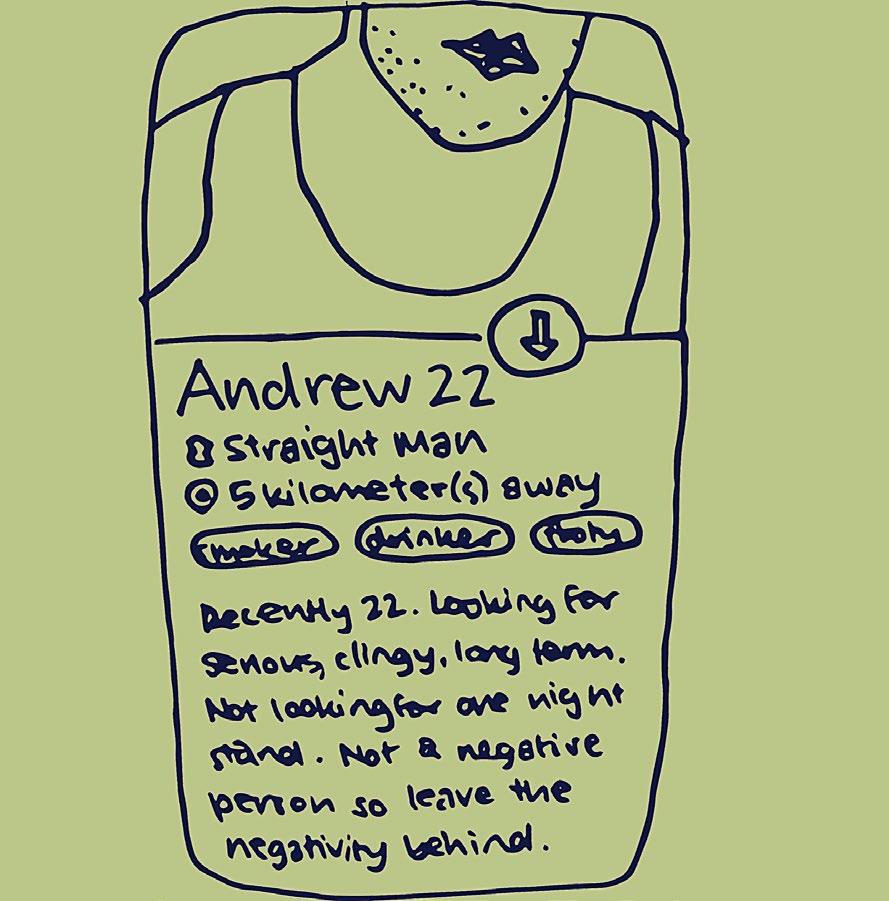 Andrew 22
Straight Man
5 kilometer(s) away
smoker drinker
Recently 22. Looking for
serious, clingy, long term.
Not looking for one night
stand. Not a negative
person so leave the
negativity behind.